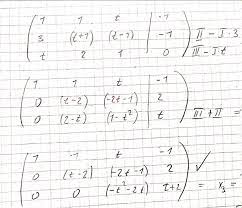 1 1 t | -1
3 (t+1) (t-1) | -1 II - I·3
t 2 1 | 0 III - I·t
1 1 t | -1
0 (t-2) (-2t-1) | 2
0 (2-t) (1-t²) | t III + II =
1 1 t -1
0 (t-2) (-2t-1) 2 ✓
0 0 (-t²-2t) t+2 = x₃ =